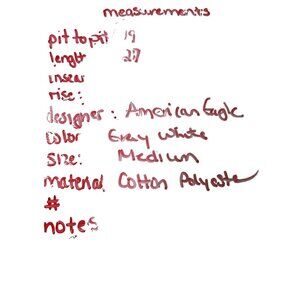 measurements
pit to pit 19
lenght 27
insear
rise:
designer : American Eagle
Color Gray White
Size: Medium
material Cotton Polyester
#
notes